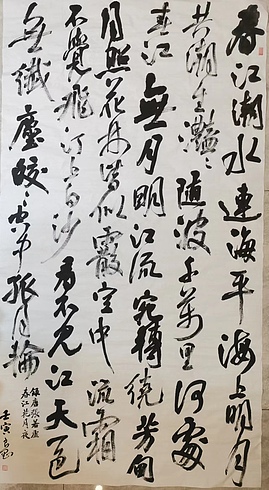 春江潮水連海平海上明月
共潮生灩々隨波千萬里何處
春江無月明江流宛轉繞芳甸
月照花林皆似霰空中流霜
不覺飛汀上白沙看不見江天一色
無纖塵皎々空中孤月輪
錄唐張若虛
春江花月夜
壬寅